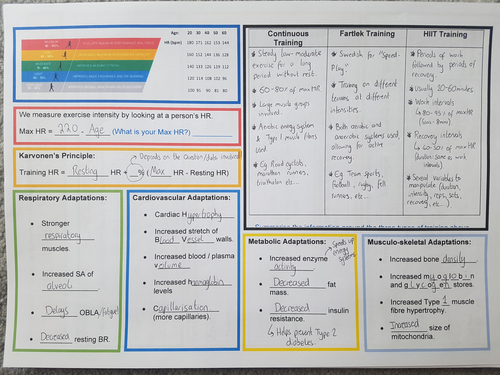 Age: 20 30 40 50 60
HR (bpm)
We measure exercise intensity by looking at a person's HR.
Max HR = 220 - Age (What is your Max HR?)
Karvonen's Principle:
Depends on the Question/data involved
Training HR = Resting HR + % (Max HR - Resting HR)
Respiratory Adaptations:
Stronger
respiratory
muscles.
Increased SA of
alveoli
Delays OBLA/fatigue
Decreased resting BR.
Cardiovascular Adaptations:
Cardiac Hypertrophy
Increased stretch of
Blood Vessel walls.
Increased blood / plasma
volume
Increased haemoglobin
levels
Capillarisation
(more capillaries).
Continuous
Training
Steady low-moderate
exercise for a long
period without rest.
60-80% of max HR
Large muscle groups
involved.
Aerobic energy system
& Type 1 muscle fibres
used.
Eg. Road cyclists,
marathon runners,
triathletes etc...
Fartlek Training
Swedish for "Speed-
Play".
Training on different
terrains at different
intensities.
Both aerobic and
anaerobic systems used,
allowing for active
recovery
Eg. Team sports,
football, rugby, fell
runners, etc...
HIIT Training
Periods of work
followed by periods of
recovery.
Usually 20-60 minutes
Work intervals
80-95% of max HR
Recovery intervals
40-50% of max HR
(duration same as work
intervals)
Several variables to
manipulate (duration,
intensity, reps, sets,
recovery, etc...)
Metabolic Adaptations:
Speeds up
energy
systems
Increased enzyme
activity
Decreased fat
mass.
Decreased insulin
resistance.
Helps prevent Type 2
diabetes
Musculo-skeletal Adaptations:
Increased bone density.
Increased myoglobin
and glycogen stores.
Increased Type 1 muscle
fibre hypertrophy.
Increased size of
mitochondria.